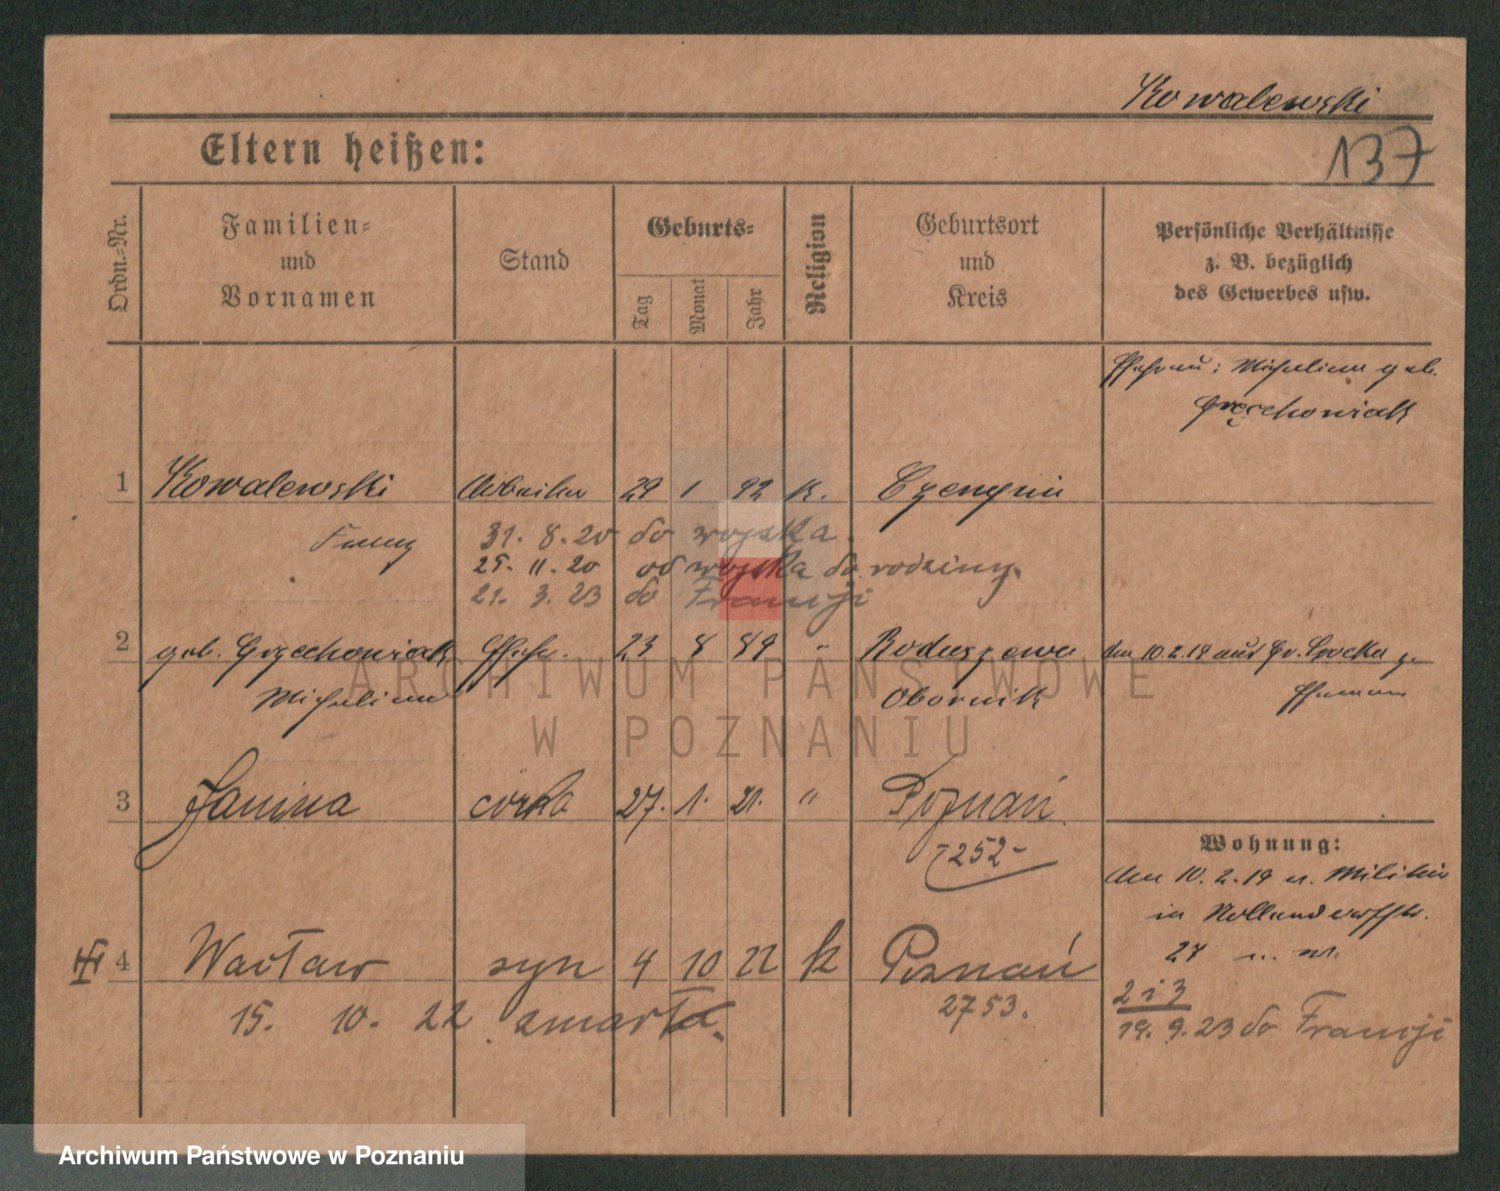 Kowalewski
137
Eltern heißen:
Ordn.-Nr.
Familien-
und
Vornamen
Stand
Geburts-
Tag
Monat
Jahr
Religion
Geburtsort
und
Kreis
Persönliche Verhältnisse
z. B. bezüglich
des Gewerbes usw.
Ehefrau: Michalina geb.
Grzechowiak
1 Kowalewski Arbeiter 29 1 92 k. Czempin
31. 8. 20 do wojska.
25. 11. 20 od wojska do rodziny.
21. 3. 23 do Francji
2 geb. Grzechowiak Ehefr. 23 8 89 "
den 10.2.19 aus
Michalina
Obornik
3 Janina córka 27. 1. 21. " Poznań.
7252-
Wohnung:
den 10. 2. 19 v. Militär
in
27
4 Wacław syn 4 10 22 k Poznań
15. 10. 22 zmarł
2753.
2 i 3
19. 9. 23 do Francji
ARCHIWUM PAŃSTWOWE
W POZNANIU
Archiwum Państwowe w Poznaniu